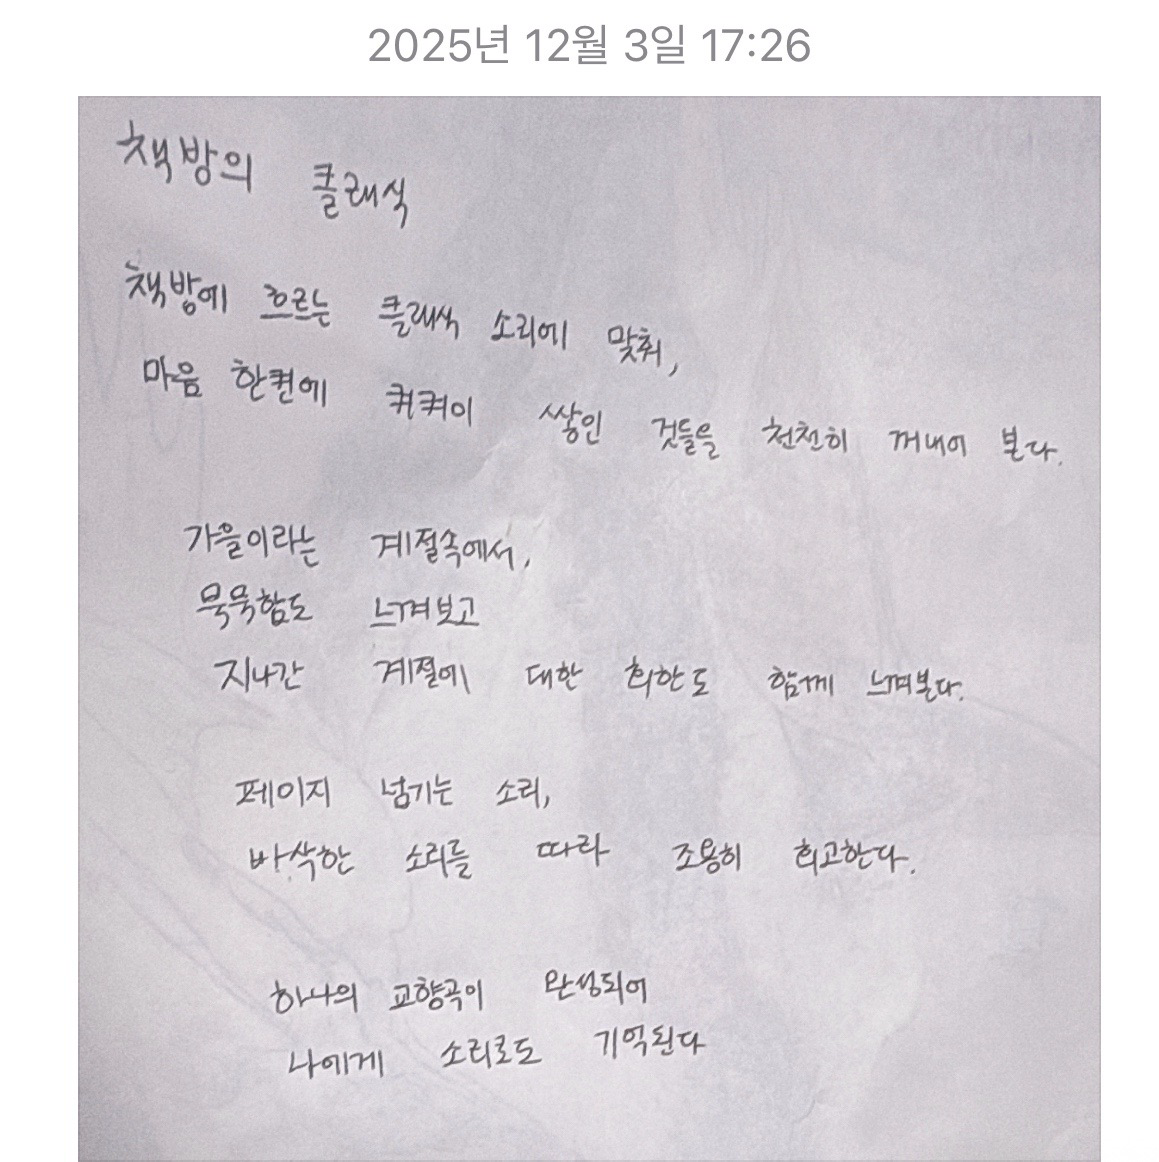 2025년 12월 3일 17:26
책방의 클래식
책방에 흐르는 클래식 소리에 맞춰,
마음 한켠에 켜켜이 쌓인 것들을 천천히 꺼내어 본다.
가을이라는 계절속에서,
묵묵함도 느껴보고
지나간 계절에 대한 회한도 함께 느껴본다.
페이지 넘기는 소리,
바삭한 소리를 따라 조용히 회고한다.
하나의 교향곡이 완성되어
나에게 소리로도 기억된다